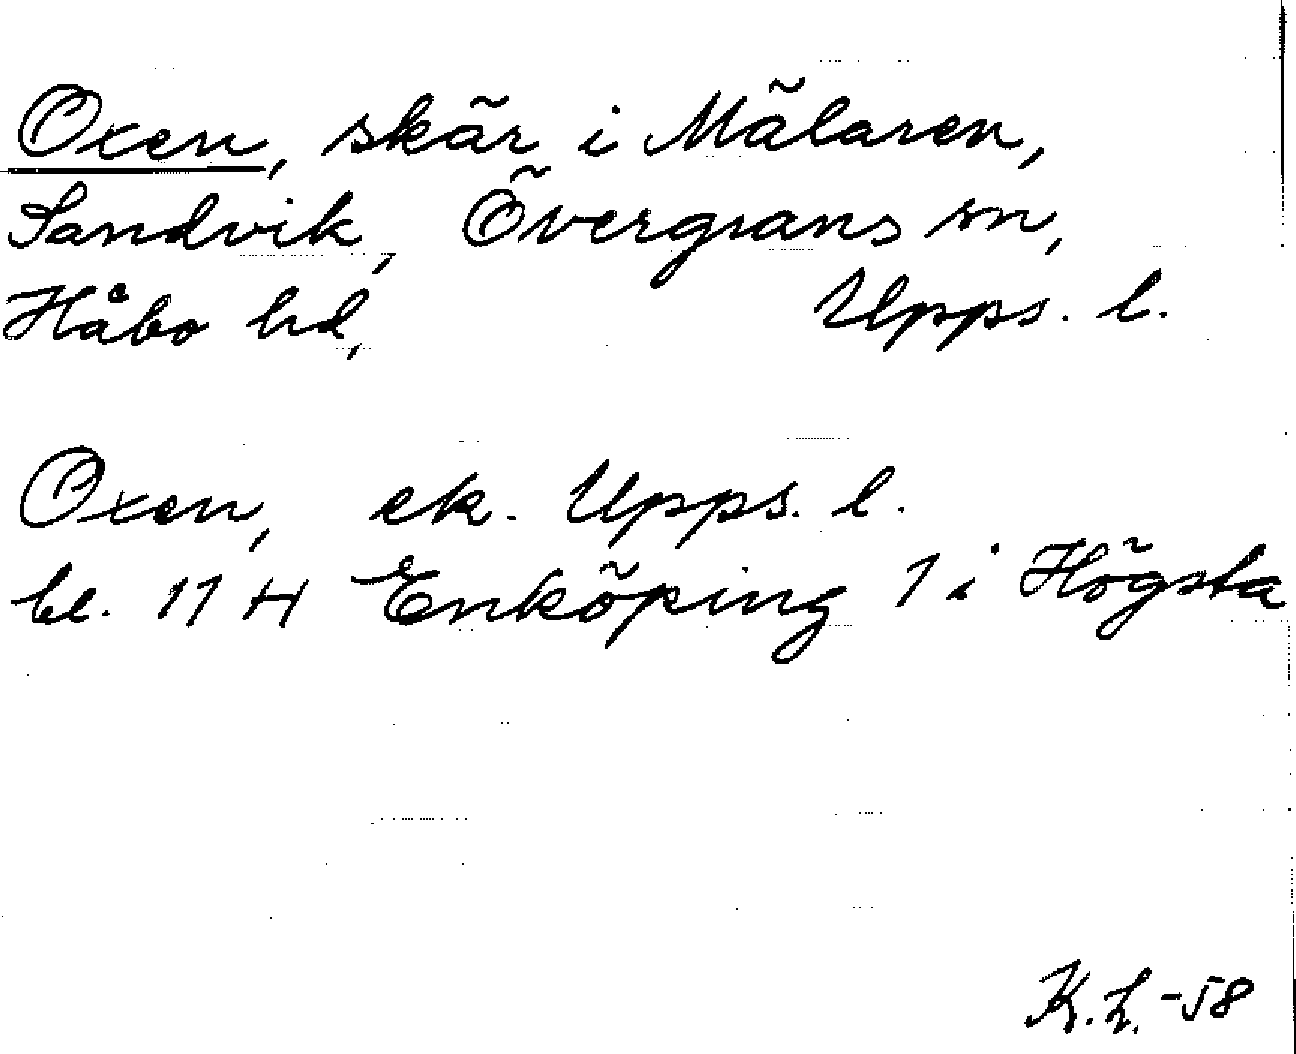 Oxen, skär i Mälaren,
Sandvik, Övergrans sn,
Håbo hd, Upps. l.
Oxen, ek. Upps. l.
bl. 11 H Enköping 1 i Högsta
K. L. -58